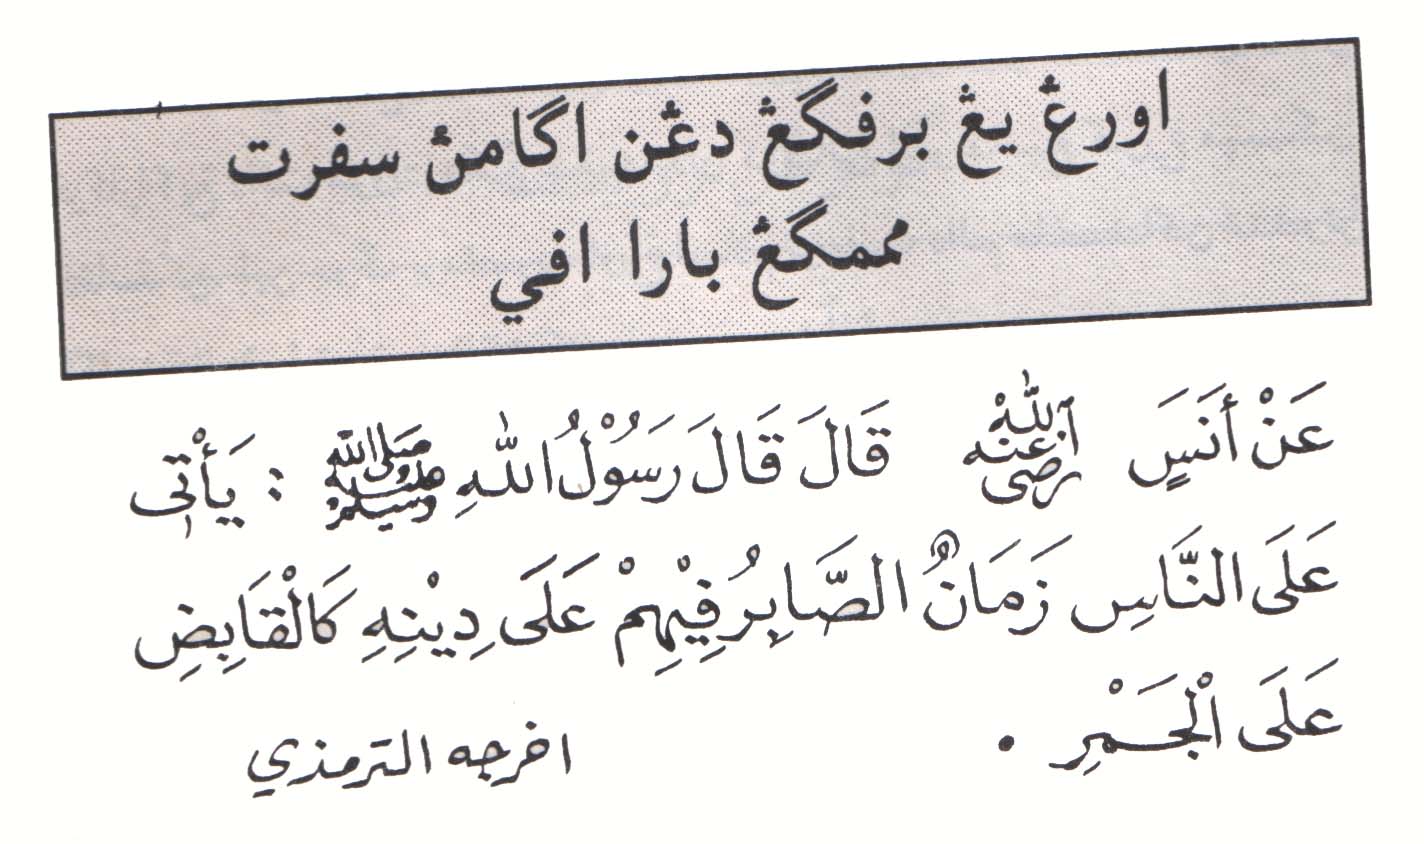 اورڠ يڠ برفݢڠ دڠن اݢامڽ سفرت
ممݢڠ بارا افي
عَنْ أَنَسٍ رضي الله عنه قَالَ قَالَ رَسُوْلُ اللهِ ﷺ : يَأْتِى
عَلَى النَّاسِ زَمَانٌ الصَّابِرُ فِيْهِمْ عَلَى دِيْنِهِ كَالْقَابِضِ
عَلَى الْجَمْرِ .
افرجه الترمذي